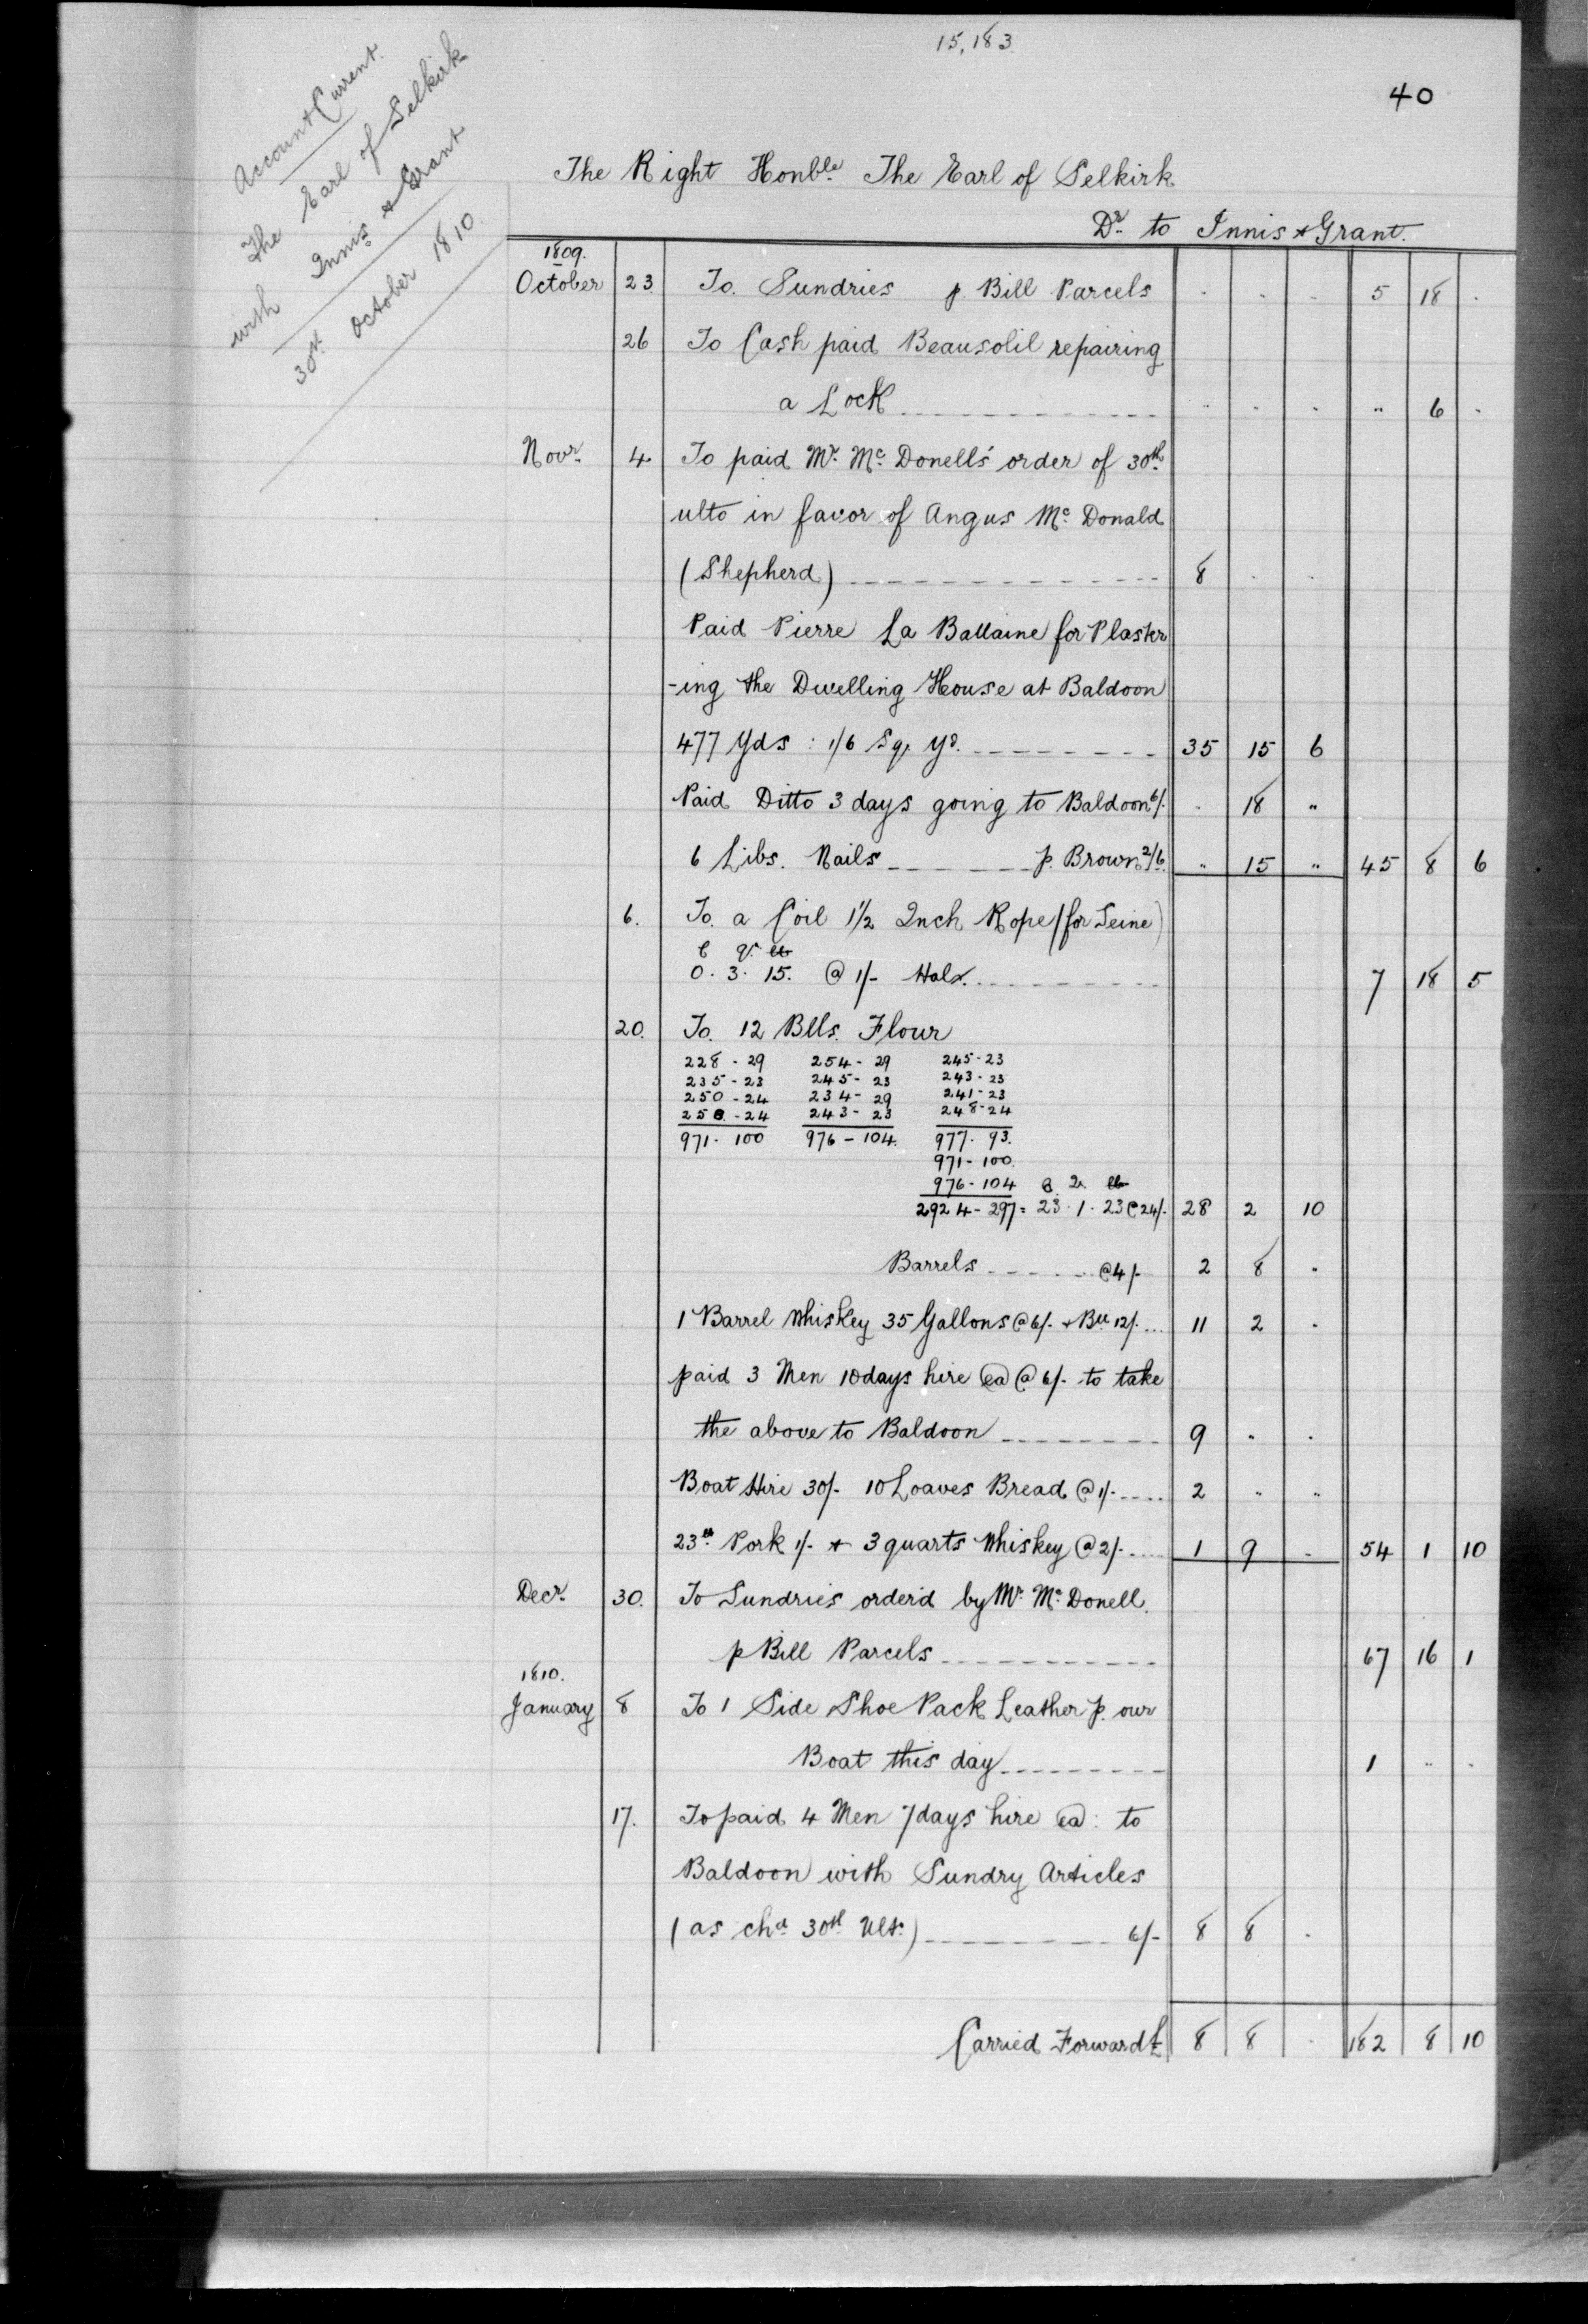 15,183
40
Account Current
The Earl of Selkirk
with Innis & Grant
30th October 1810.
The Right Honble. The Earl of Selkirk
Dr. to Innis & Grant.
1809.
October 23. To. Sundries p. Bill Parcels . . . 5 18 .
26 To Cash paid Beausolil repairing
a Lock " . . " 6 .
Novr. 4 To paid Mr. Mc. Donells' order of 30th.
ulto in favor of Angus Mc. Donald
(Shepherd) 8 . .
Paid Pierre La Ballaine for Plaster
-ing the Dwelling House at Baldoon
477 Yds : 1/6 Sq. yd. 35 15 6
Paid Ditto 3 days going to Baldoon 6/. . 18 "
6 Libs. Nails p. Brown 2/6. " 15 " 45 8 6
6. To. a Coil 1 1/2 Inch Rope (for Seine)
C qr. lb
0. 3. 15. @ 1/- Halx. 7 18 5
20. To. 12 Blls. Flour
228 - 29 254 - 29 245 - 23
235 - 23 245 - 23 243 - 23
250 - 24 234 - 29 241 - 23
258. - 24 243 - 23 248 - 24
971 - 100 976 - 104. 977. 93.
971 - 100.
976 - 104 C. Qr. lb
2924 - 297 = 23. 1. 23 @ 24/. 28 2 10
Barrels @ 4/- 2 8 .
1 Barrel Whiskey 35 Gallons @ 6/. & Bll 12/. 11 2 .
paid 3 Men 10 days hire ea @ 6/. to take
the above to Baldoon 9 " .
Boat Hire 30/- 10 Loaves Bread @ 1/. 2 " "
23lb. Pork 1/- & 3 quarts Whiskey @ 2/. 1 9 . 54 1 10
Decr. 30. To Sundries order'd by Mr. Mc. Donell.
p Bill Parcels 67 16 1
1810.
January 8 To 1 Side Shoe Pack Leather p. our
Boat this day 1 " .
17. To paid 4 Men 7 days hire ea: to
Baldoon with Sundry Articles
(as chd. 30th Ulto.) 6/- 8 8 .
Carried Forward £ 8 8 . 182 8 10